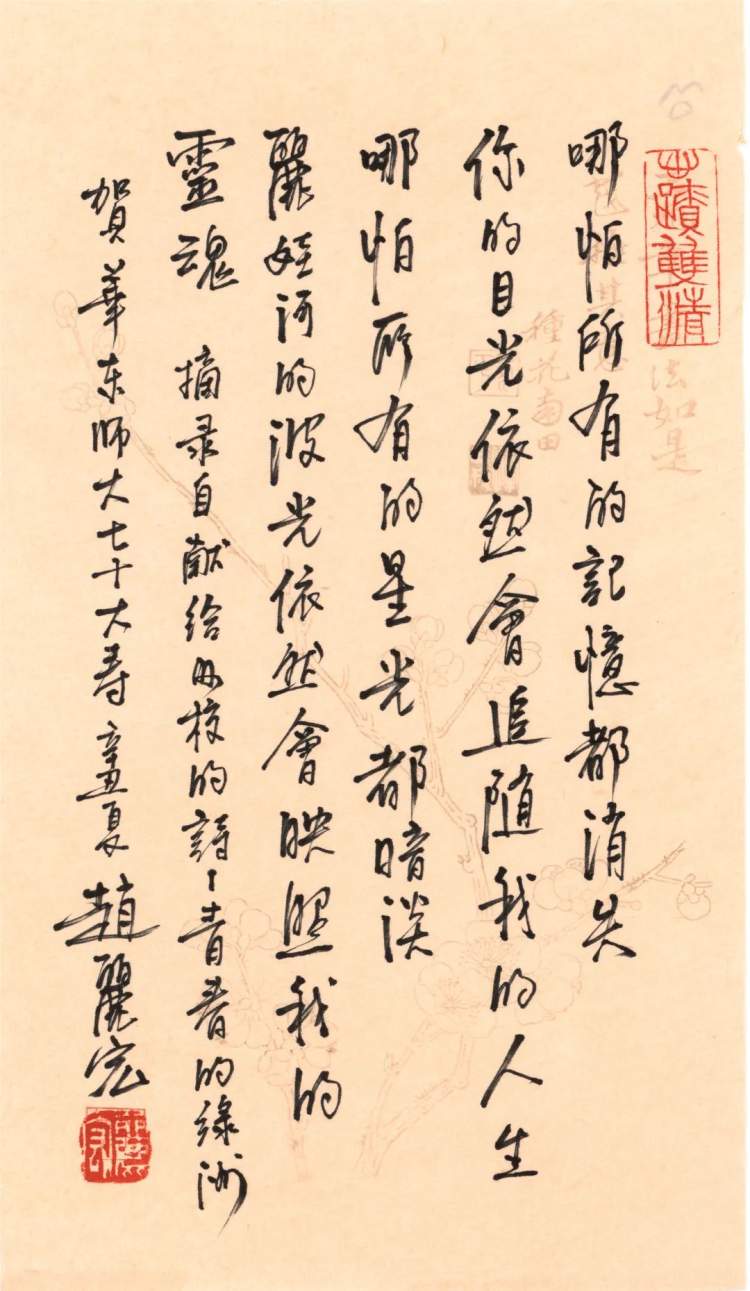 哪怕所有的記憶都消失
你的目光依然會追随我的人生
哪怕所有的星光都暗淡
麗娃河的波光依然會映照我的
靈魂 摘录自献给母校的詩：青春的綠洲
賀華东师大七十大寿 辛丑夏 趙麗宏
種花南田
法如是